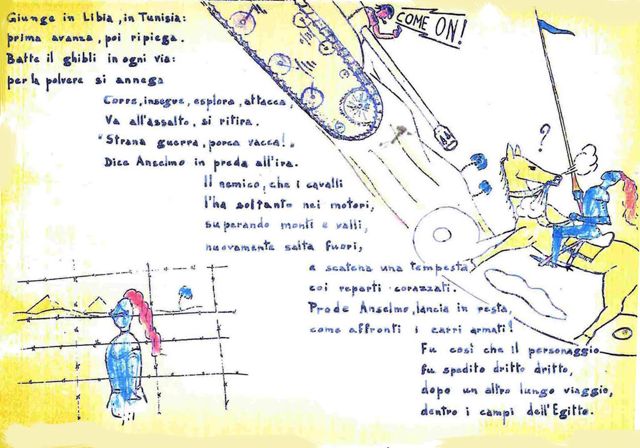 Giunge in Libia, in Tunisia:
prima avanza, poi ripiega.
Batte il ghibli in ogni via:
per la polvere si annega
Corre, insegue, esplora, attacca,
Va all'assalto, si ritira.
"Strana guerra, porca vacca!"
Dice Anselmo in preda all'ira.
Il nemico, che i cavalli
l'ha soltanto nei motori,
superando monti e valli,
nuovamente salta fuori,
e scatena una tempesta
coi reparti corazzati.
Prode Anselmo, lancia in resta,
come affronti i carri armati!
Fu così che il personaggio
fu spedito dritto dritto,
dopo un altro lungo viaggio,
dentro i campi dell'Egitto.
COME ON!
?